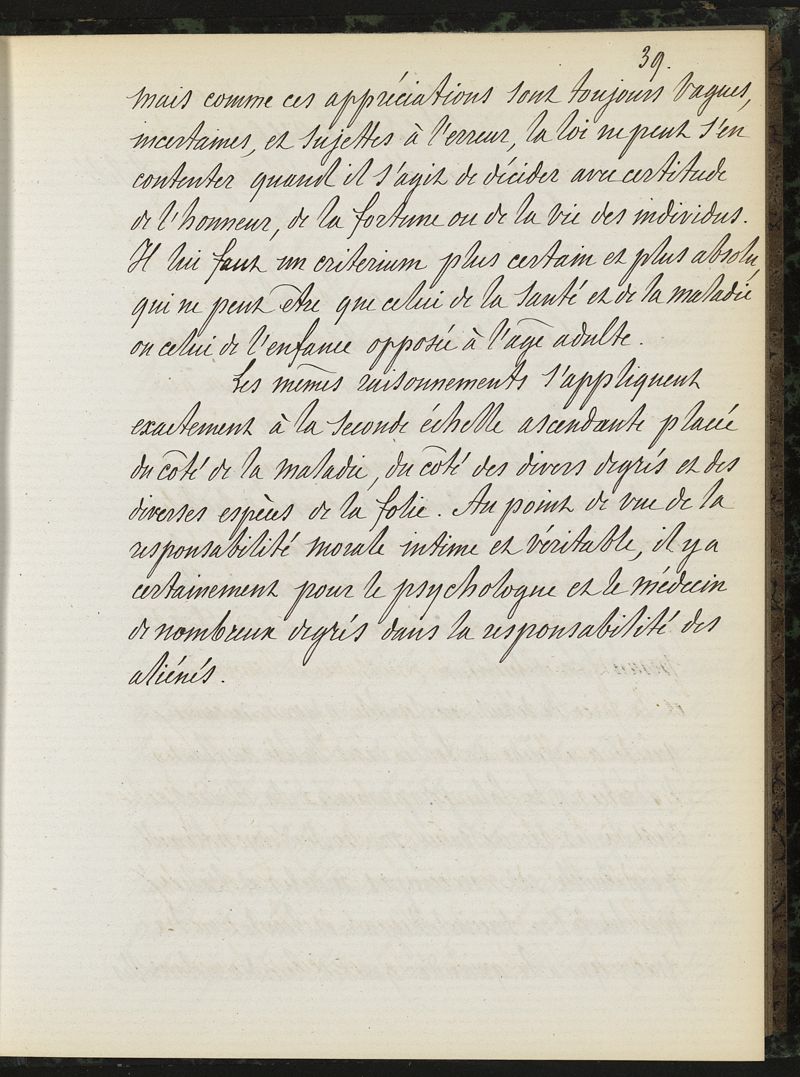 39.
mais comme ces appréciations sont toujours vagues,
incertaines, et sujettes à l'erreur, la loi ne peut s'en
contenter quand il s'agit de décider avec certitude
de l'honneur, de la fortune ou de la vie des individus.
Il lui faut un criterium plus certain et plus absolu,
qui ne peut être que celui de la santé et de la maladie
ou celui de l'enfance opposée à l'âge adulte.
Les mêmes raisonnements s'appliquent
exactement à la seconde échelle ascendante placée
du côté de la maladie, du côté des divers degrés et des
diverses espèces de la folie. Au point de vue de la
responsabilité morale intime et véritable, il y a
certainement pour le psychologue et le médecin
de nombreux degrés dans la responsabilité des
aliénés.